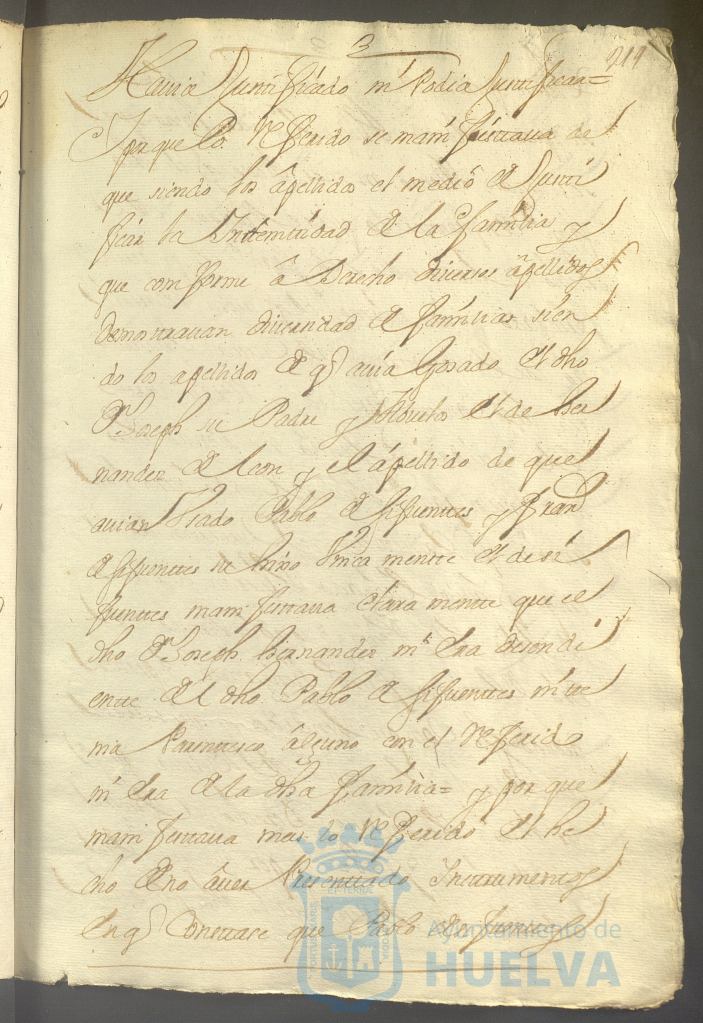 3
211
Havia Justificado ni Podia Justificar=
Y porque lo Referido se manifestaua de
que siendo los apellidos el medio de Justi
ficar la Indemtidad de la familia y
que comforme a Derecho diuersos apellidos
demostrauan diuersidad de familias sien
do los apellidos de q auia Gosado el dho
Dn Joseph su Padre y Abuelos el de her
nandez de leon y el apellido de que
auian Usado Pablo de sifuentes y fran
de sifuentes su hijo Unica mentte el de si
fuentes manifestaua clara mentte que el
dho Dn Joseph hernandez ni era desendi
entte del dho Pablo de sifuenttes ni te
nia Parentesco alguno con el Referido
ni era de la dha familia= y por que
manifestaua mas lo Referido el he
cho de no auer Presenttado Instrumentos
en q Constase que Pablo de sifuentes
Ayuntamiento de
HUELVA